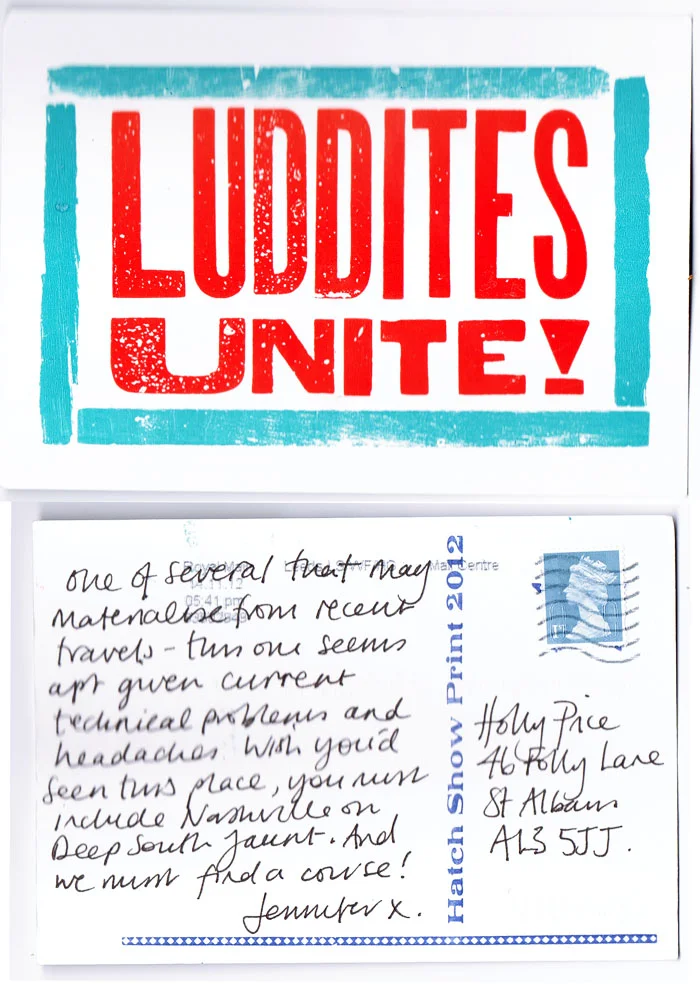 LUDDITES
UNITE!
Royal Mail Leeds Mail Centre
05:41 pm
one of several that may
materialise from recent
travels - this one seems
apt given current
technical problems and
headaches. Wish you'd
seen this place, you must
include Nashville on
Deep South jaunt. And
we must find a course!
Jennifer x.
Hatch Show Print 2012
1ST
Holly Price
46 Folly Lane
St Albans
AL3 5JJ.